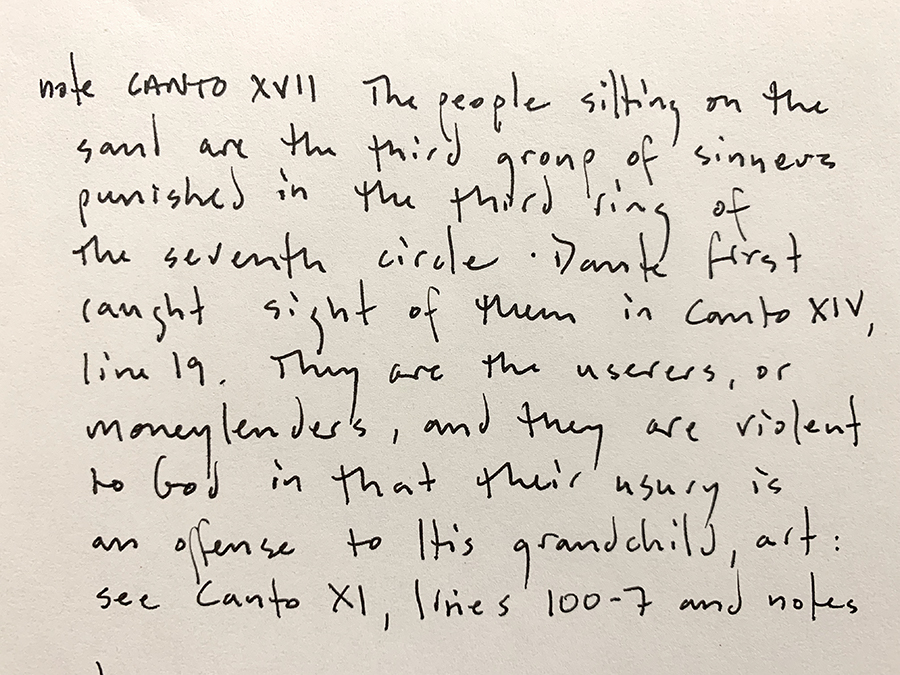 note CANTO XVII The people sitting on the
sand are the third group of sinners
punished in the third ring of
the seventh circle. Dante first
caught sight of them in Canto XIV,
line 19. They are the userers, or
moneylenders, and they are violent
to God in that their usury is
an offense to His grandchild, art:
see Canto XI, lines 100-7 and notes